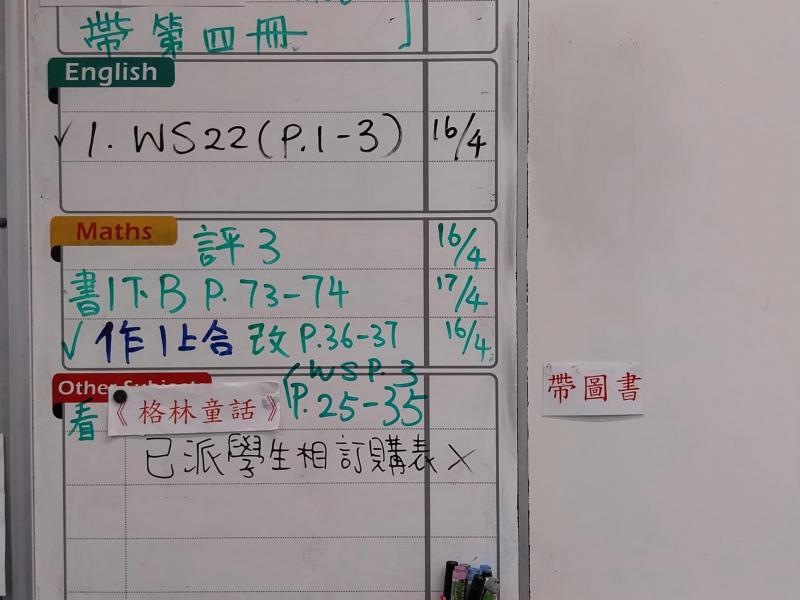 帶第四冊
English
✓ 1. WS22(P.1-3) 16/4
Maths
評3 16/4
書1下B P.73-74 17/4
✓ 作1上合 改 P.36-37 16/4
(WSP.3
Other Subjects
看《格林童話》P.25-35
帶圖書
已派學生相訂購表 ×